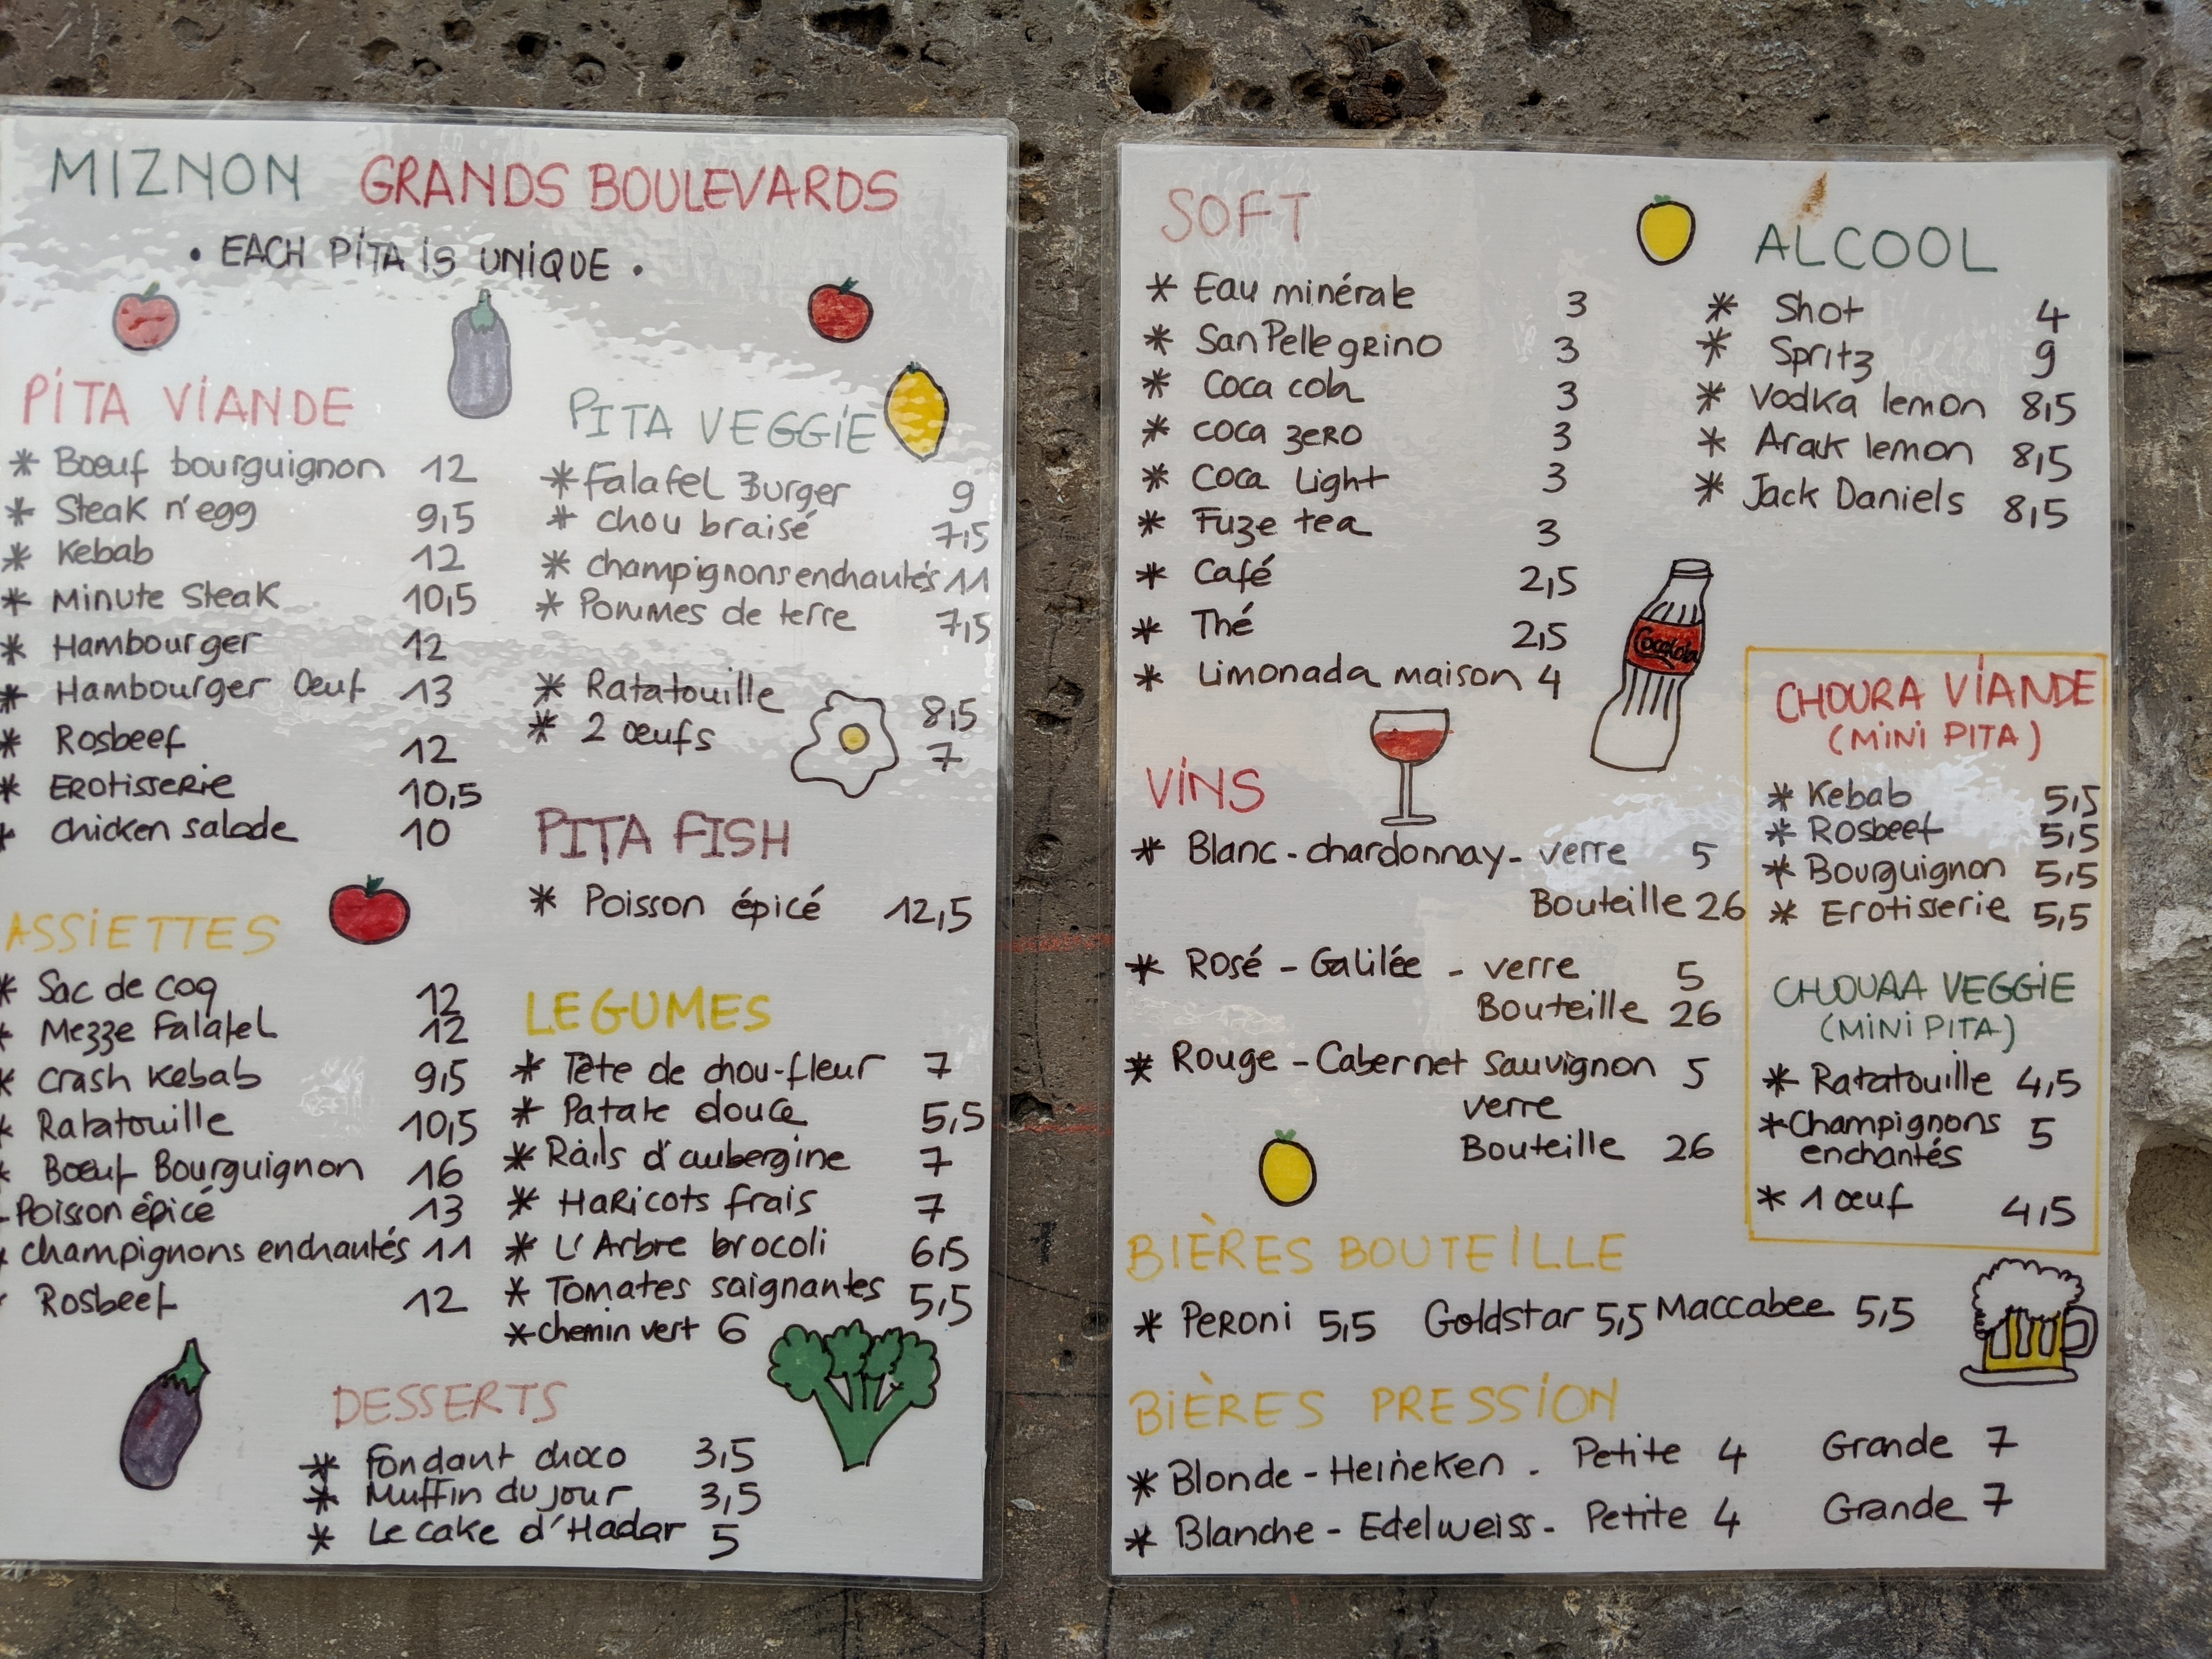 MIZNON GRANDS BOULEVARDS
• EACH PITA IS UNIQUE •
PITA VIANDE
* Bœuf bourguignon 12
* Steak n'egg 9,5
* Kebab 12
* Minute Steak 10,5
* Hambourger 12
* Hambourger Oeuf 13
* Rosbeef 12
* Erotisserie 10,5
* chicken salade 10
ASSIETTES
* Sac de coq 12
* Mezze Falafel 12
* Crash Kebab 9,5
* Ratatouille 10,5
* Bœuf Bourguignon 16
Poisson épicé 13
* champignons enchantés 11
* Rosbeef 12
PITA VEGGIE
* Falafel Burger 9
* chou braisé 7,5
* champignons enchantés 11
* Pommes de terre 7,5
* Ratatouille 8,5
* 2 œufs 7
PITA FISH
* Poisson épicé 12,5
LEGUMES
* Tête de chou-fleur 7
* Patate douce 5,5
* Rails d'aubergine 7
* Haricots frais 7
* L'Arbre brocoli 6,5
* Tomates saignantes 5,5
* chemin vert 6
DESSERTS
* Fondant choco 3,5
* Muffin du jour 3,5
* Le cake d'Hadar 5
SOFT
* Eau minérale 3
* San Pellegrino 3
* Coca cola 3
* coca zero 3
* Coca Light 3
* Fuze tea 3
* Café 2,5
* Thé 2,5
* Limonada maison 4
Coca Cola
ALCOOL
* Shot 4
* Spritz 9
* Vodka lemon 8,5
* Arak lemon 8,5
* Jack Daniels 8,5
VINS
* Blanc - chardonnay - verre 5
Bouteille 26
* Rosé - Galilée - verre 5
Bouteille 26
* Rouge - Cabernet Sauvignon 5
verre
Bouteille 26
CHOURA VIANDE
(MINI PITA)
* Kebab 5,5
* Rosbeef 5,5
* Bourguignon 5,5
* Erotisserie 5,5
CHOUAA VEGGIE
(MINI PITA)
* Ratatouille 4,5
* Champignons 5
enchantés
* 1 œuf 4,5
BIÈRES BOUTEILLE
* Peroni 5,5 Goldstar 5,5 Maccabee 5,5
BIÈRES PRESSION
* Blonde - Heineken - Petite 4 Grande 7
* Blanche - Edelweiss - Petite 4 Grande 7